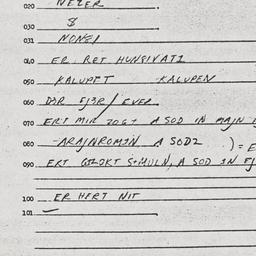 020 NEZER
030 8
031 NONE/
040 ER. RRT HUNGIVATI
050 KALUPFT -KALUPEN
060 DJR EJ3R/EVER
070 ERT MIR ZOG+ A SOD IN MAJN
080 -ARAJNROMJN A SODZ )=E
090 EKT S+MULN, A SOD JN EJ
100 ER HERT NIT
101 —